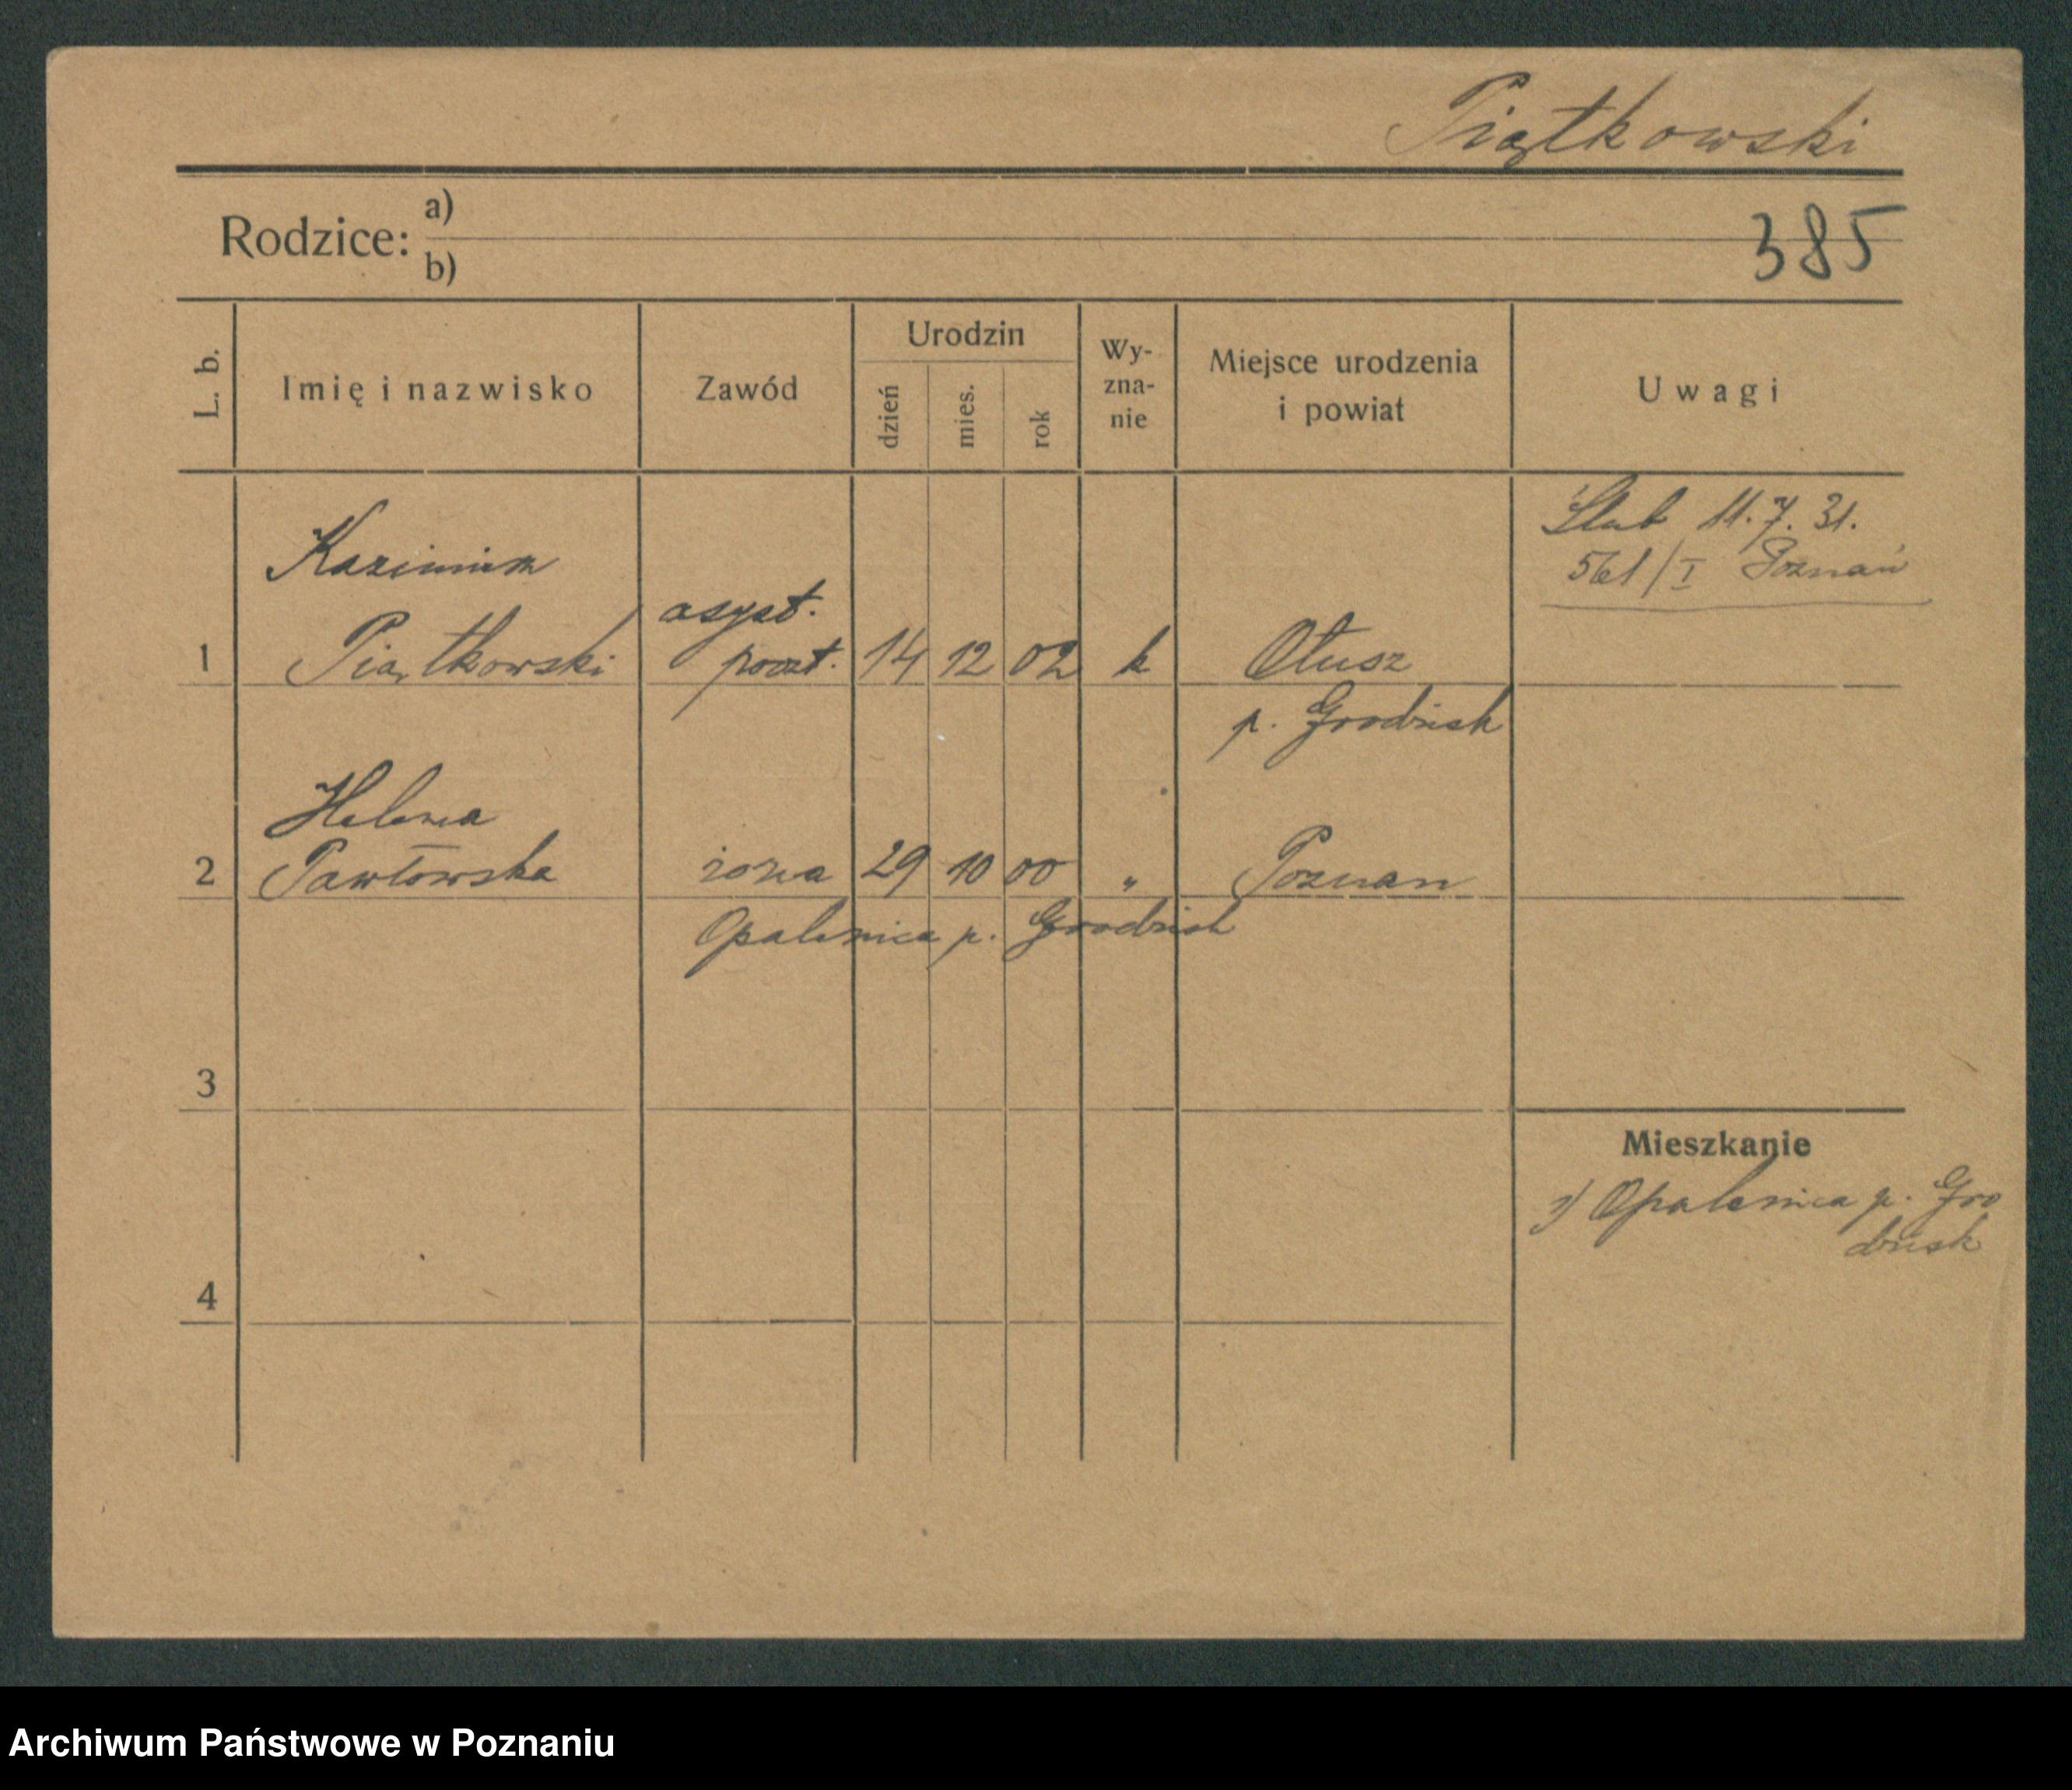 Piątkowski
Rodzice: a)
b)
385
L. b.
Imię i nazwisko
Zawód
Urodzin
dzień
mies.
rok
Wy-
zna-
nie
Miejsce urodzenia
i powiat
Uwagi
Ślub 11. 7. 31.
561/I Poznań
Kazimierz
asyst.
1 Piątkowski poczt. 14 12 02 k Otusz
p. Grodzisk
Helena
2 Pawłowska żona 29 10 00 " Poznan
Opalenica p. Grodzisk
3
Mieszkanie
1) Opalenica p. Gro
dzisk
4
Archiwum Państwowe w Poznaniu